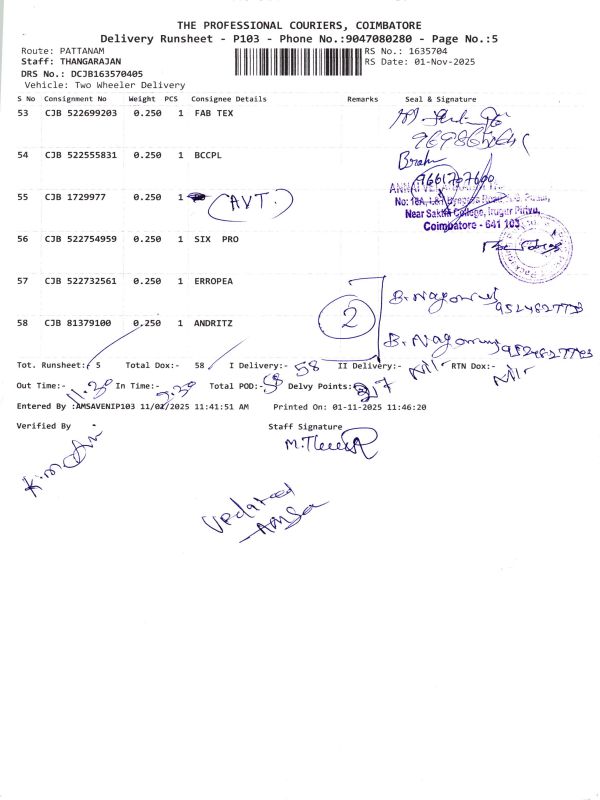 THE PROFESSIONAL COURIERS, COIMBATORE
Delivery Runsheet - P103 - Phone No.:9047080280 - Page No.:5
Route: PATTANAM RS No.: 1635704
Staff: THANGARAJAN RS Date: 01-Nov-2025
DRS No.: DCJB163570405
Vehicle: Two Wheeler Delivery
S No Consignment No Weight PCS Consignee Details Remarks Seal & Signature
53 CJB 522699203 0.250 1 FAB TEX
54 CJB 522555831 0.250 1 BCCPL
9661707600
55 CJB 1729977 0.250 1 (AVT.)
Near Sakthi College, Irugur Pirivu,
Coimbatore - 641 103
56 CJB 522754959 0.250 1 SIX PRO
57 CJB 522732561 0.250 1 ERROPEA
B. Nagomi 9524627773
2
58 CJB 81379100 0.250 1 ANDRITZ
Tot. Runsheet:- 5 Total Dox:- 58 I Delivery:- 58 II Delivery:- Nil- RTN Dox:- Nil-
Out Time:- 11.30 In Time:- Total POD:- 58 Delvy Points:-
Entered By :AMSAVENIP103 11/01/2025 11:41:51 AM Printed On: 01-11-2025 11:46:20
Verified By Staff Signature
Updated
Amsa